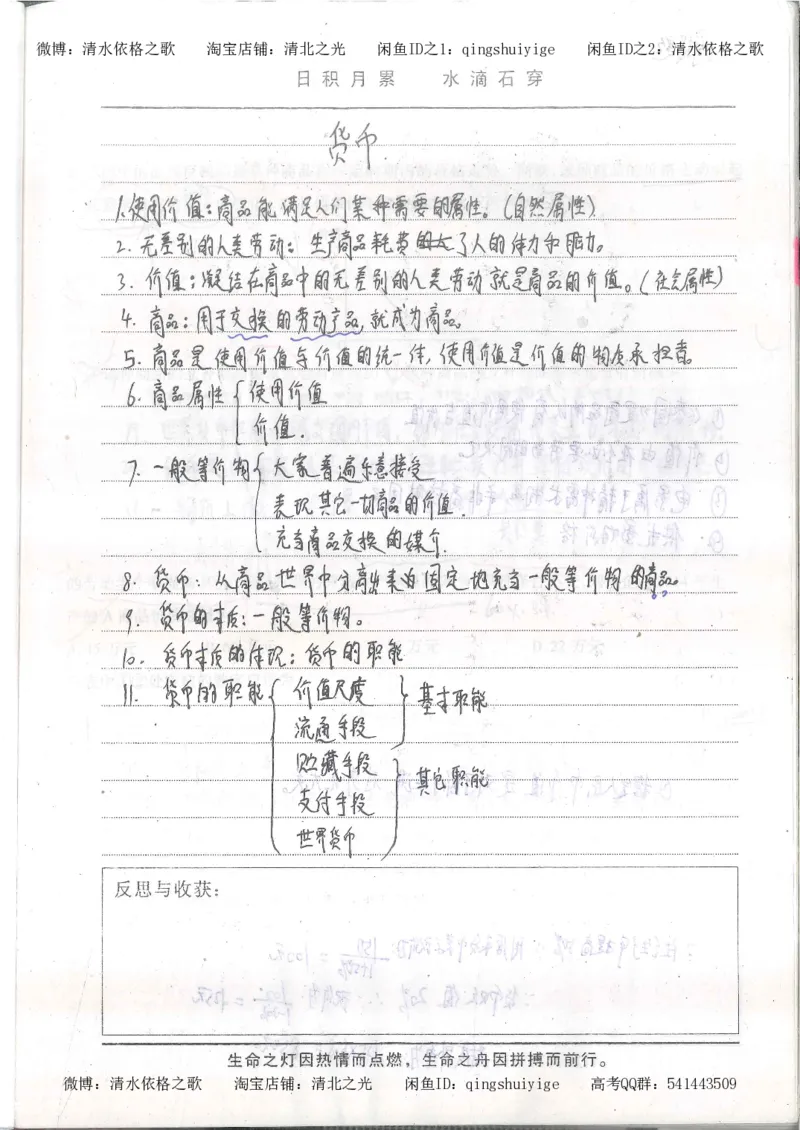 微博：清水依格之歌 淘宝店铺：清北之光 闲鱼ID之1：qingshuiyige 闲鱼ID之2：清水依格之歌
日积月累 水滴石穿
货币
1.使用价值：商品能满足人们某种需要的属性。（自然属性）
2. 无差别的人类劳动：生产商品耗费了人的体力和脑力。
3. 价值：凝结在商品中的无差别的人类劳动就是商品的价值。（社会属性）
4. 商品：用于交换的劳动产品，就成为商品。
5. 商品是使用价值与价值的统一体，使用价值是价值的物质承担者。
6. 商品属性 { 使用价值
价值.
7. 一般等价物 { 大家普遍乐意接受
表现其它一切商品的价值.
充当商品交换的媒介.
8. 货币：从商品世界中分离出来的固定地充当一般等价物的商品。
9. 货币的本质：一般等价物。
10. 货币本质的体现：货币的职能
11. 货币的职能 { 价值尺度 } 基本职能
流通手段
贮藏手段 } 其它职能
支付手段
世界货币
反思与收获：
生命之灯因热情而点燃，生命之舟因拼搏而前行。
微博：清水依格之歌 淘宝店铺：清北之光 闲鱼ID：qingshuiyige 高考QQ群：541443509